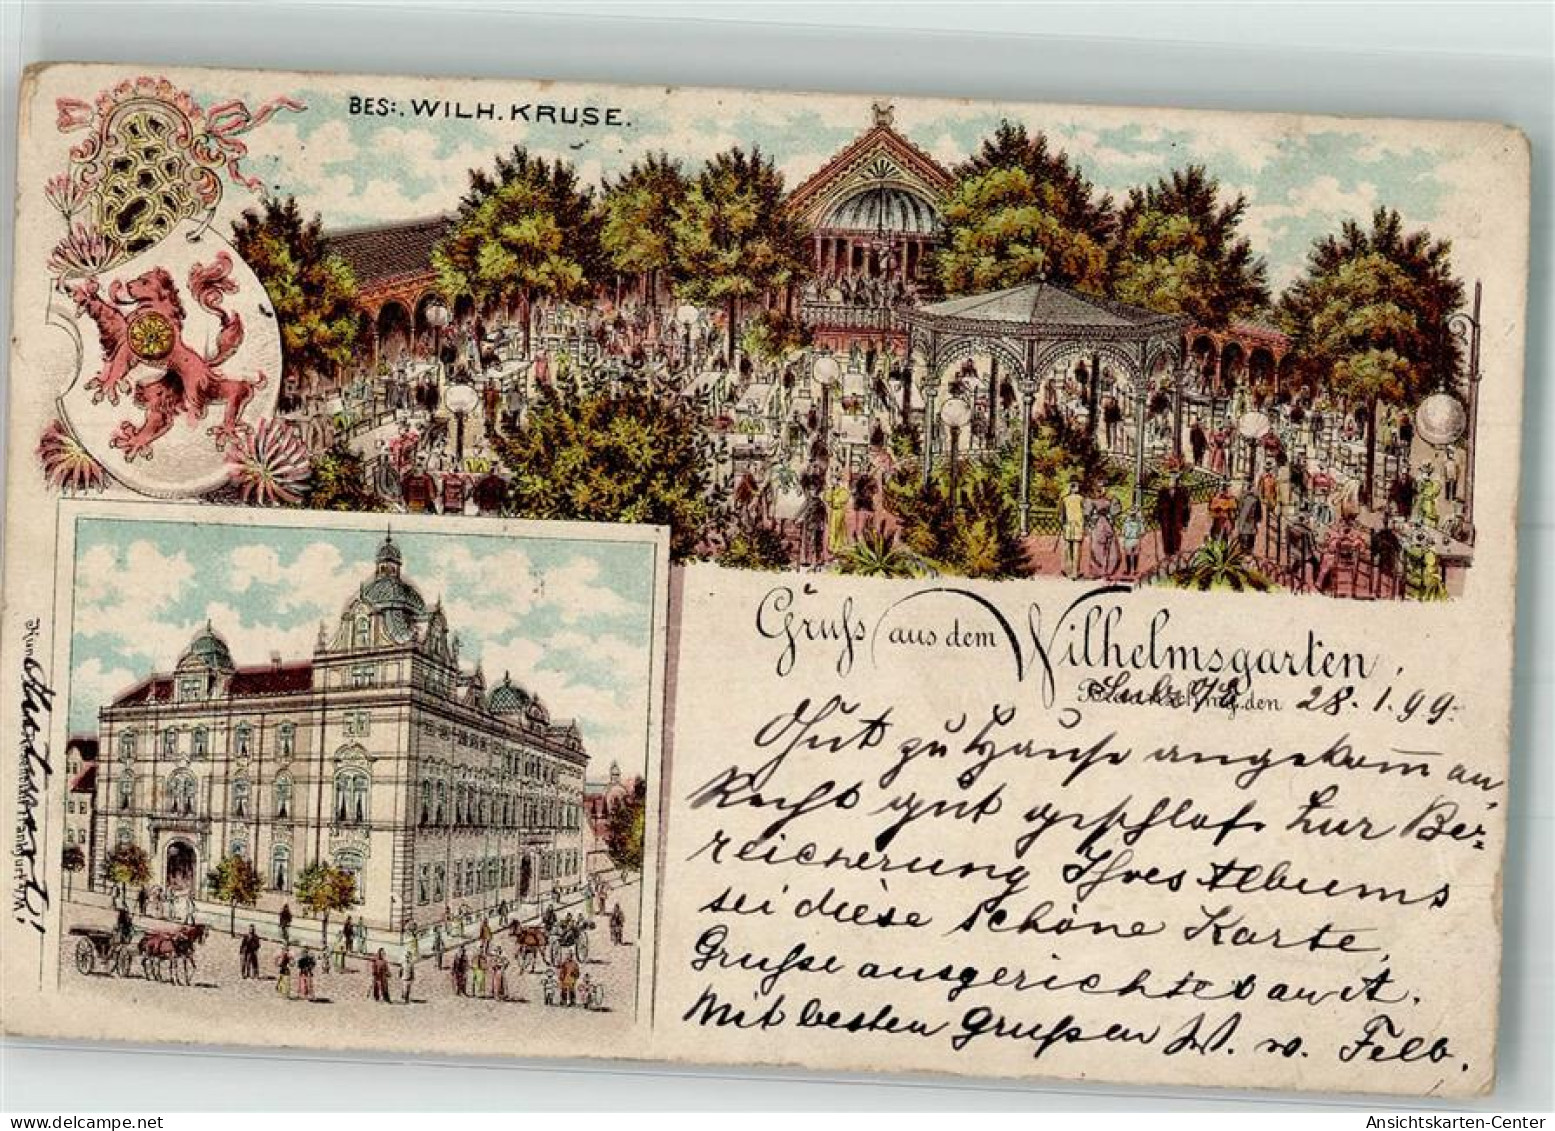 BES: WILH. KRUSE.
Gruss aus dem Wilhelmsgarten,
den 28.1.99.
Gut zu Hause angekomm en,
Recht gut geschlafe Zur Be-
reicherung Ihres Albums
sei diese schöne Karte,
Grüsse ausgerichtet an A.
Mit besten Grüßen W. v. Felb.
Ansichtskarten-Center